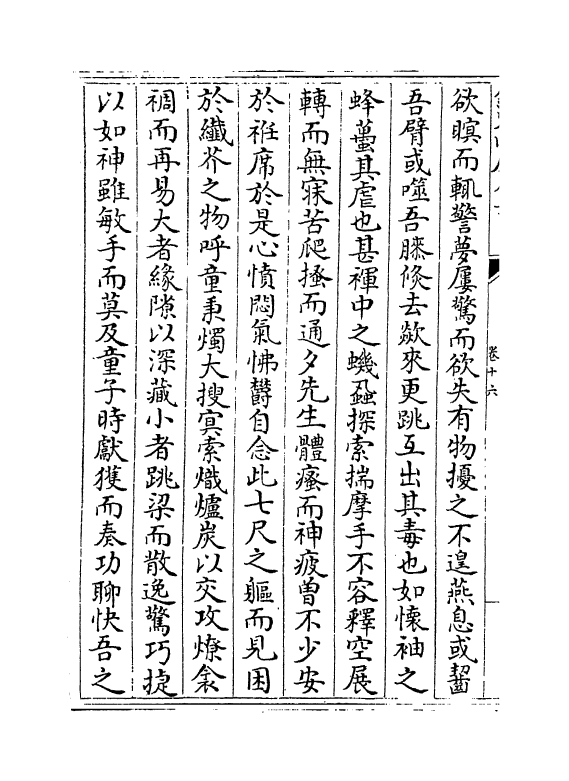 欲瞑而輒警夢屢驚而欲失有物擾之不遑燕息或齧
吾臂或噬吾膝倐去歘來更跳互出其毒也如懷袖之
蜂蠆其虐也甚褌中之蟣蝨探索揣摩手不容釋空展
轉而無寐苦爬搔而通夕先生體瘙而神疲曽不少安
於袵席於是心憤悶氣怫欝自念此七尺之軀而見困
於纎芥之物呼童秉燭大搜冥索熾爐炭以交攻燎衾
裯而再易大者緣隙以深藏小者跳梁而散逸驚巧捷
以如神雖敏手而莫及童子時獻獲而奏功聊快吾之
卷十六